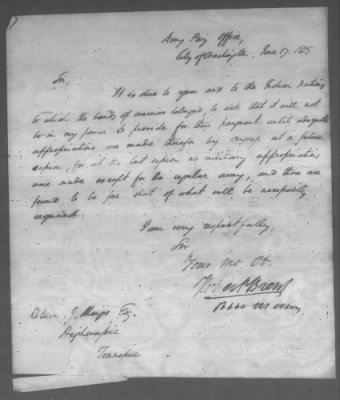 Army Pay Office,
City of Washington June 17 1815
Sir,
It is due to you and to the Indian Nations
to which the bands of warriors belonged, to state that it will not
be in my power to provide for their payment until adequate
appropriations are made therefor by congress at a future
session, for at the last session no military appropriations
were made except for the regular army, and those are
found to be far short of what will be necessarily
required.
I am very respectfully,
Sir
Yours Mo. Ob.
Robert Brent
Return J. Meigs Esq.
Highwassee
Tennessee